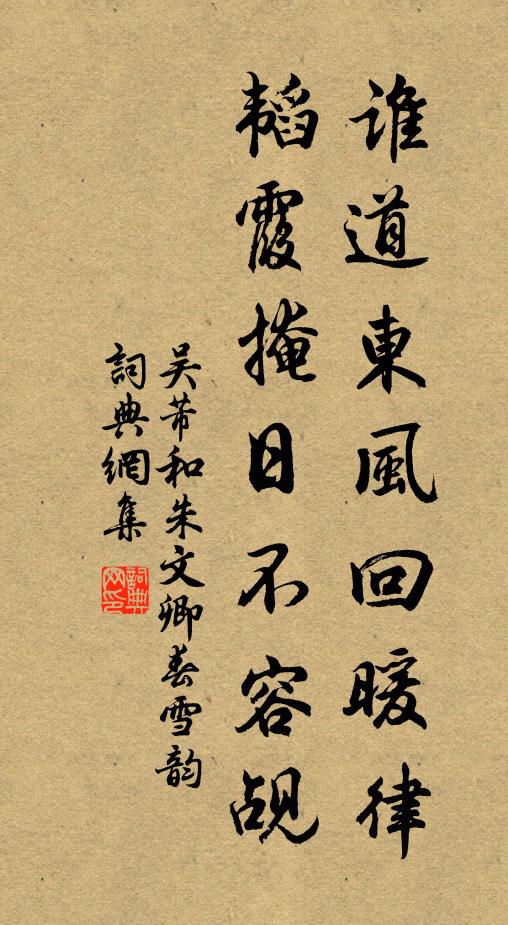 誰道東風回暖律
韜霞掩日不容覘
吴芾和朱文卿春雪韵
詞典網集
詞典网印